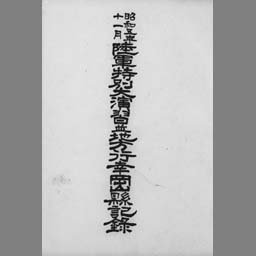 昭和五年
十一月
陸軍特別大演習並地方行幸岡山縣記録